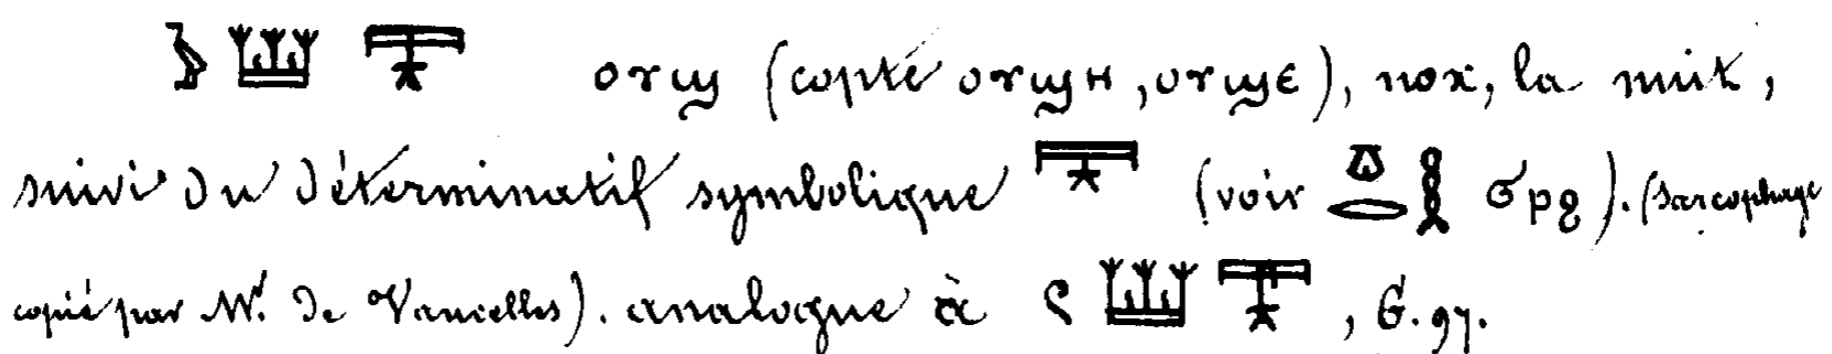 𓅱𓆷𓇰 ⲟⲩϣ (copte ⲟⲩϣⲏ, ⲟⲩϣⲉ), nox, la nuit,
suivi du déterminatif symbolique 𓇰 (voir 𓎼𓂋𓎛 ϭⲣϩ). (Sarcophage
copié par Mr. de Vaucelles). analogue à 𓏲𓆷𓇰, G. 97.